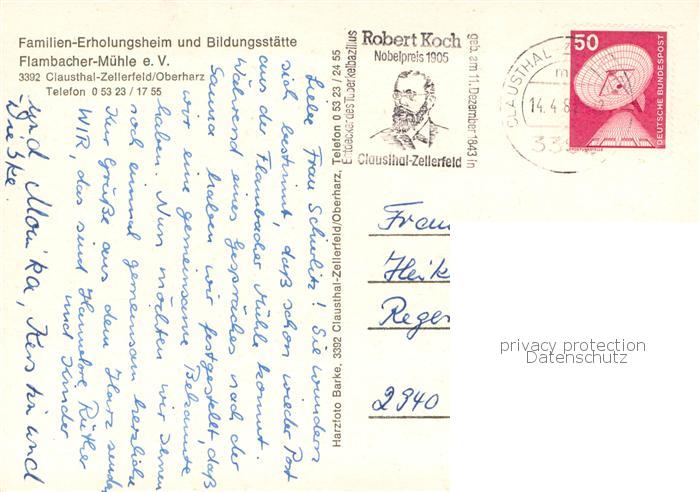 Familien-Erholungsheim und Bildungsstätte
Flambacher-Mühle e. V.
3392 Clausthal-Zellerfeld/Oberharz
Telefon 0 53 23 / 17 55
Liebe Frau Schulitz! Sie wundern
sich bestimmt, daß schon wieder Post
aus der Flambacher Mühle kommt.
Während eines Gespräches nach der
Sauna haben wir festgestellt, daß
wir eine gemeinsame Bekannte
haben. Nun möchten wir Ihnen
noch einmal gemeinsam herzliche
Kur Grüße aus dem Harz senden
WIR das sind Hannelore Rüther
und Kinder
und Monika, Kerstin und
Harzfoto Barke, 3392 Clausthal-Zellerfeld/Oberharz, Telefon 0 53 23 / 24 55
Entdecker des Tuberkelbazillus
Robert Koch
Nobelpreis 1905
geb. am 11. Dezember 1843 in
Clausthal-Zellerfeld
CLAUSTHAL-
14.4.8
50
DEUTSCHE BUNDESPOST
Frau
Heik
Reger
2940
privacy protection
Datenschutz